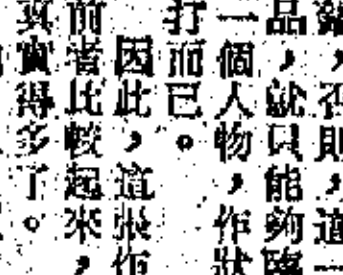 否則，這
品，就只能夠
一個人物，作狀
打而已。
因此，這張作
前者比較起來，
真實得多了。